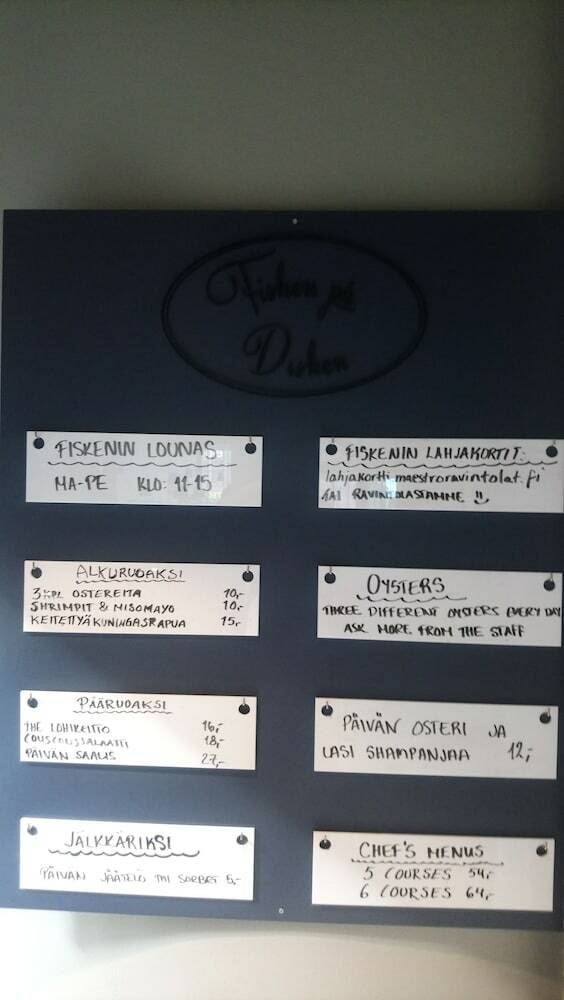 Fisken på
Disken
FISKENIN LOUNAS
MA-PE KLO: 11-15
ALKURUOAKSI
3 KPL OSTEREITA 10,-
SHRIMPIT & MISOMAYO 10,-
KEITETTYÄ KUNINGASRAPUA 15,-
PÄÄRUOAKSI
THE LOHIKEITTO 16,-
COUSCOUSSALAATTI 18,-
PÄIVÄN SAALIS 27,-
JÄLKKÄRIKSI
PÄIVÄN JÄÄTELÖ TAI SORBET 5,-
FISKENIN LAHJAKORTIT:
lahjakortti.maestroravintolat.fi
TAI RAVINTOLASTAMME
OYSTERS
THREE DIFFERENT OYSTERS EVERY DAY
ASK MORE FROM THE STAFF
PÄIVÄN OSTERI JA
LASI SHAMPANJAA 12,-
CHEF'S MENUS
5 COURSES 54,-
6 COURSES 64,-